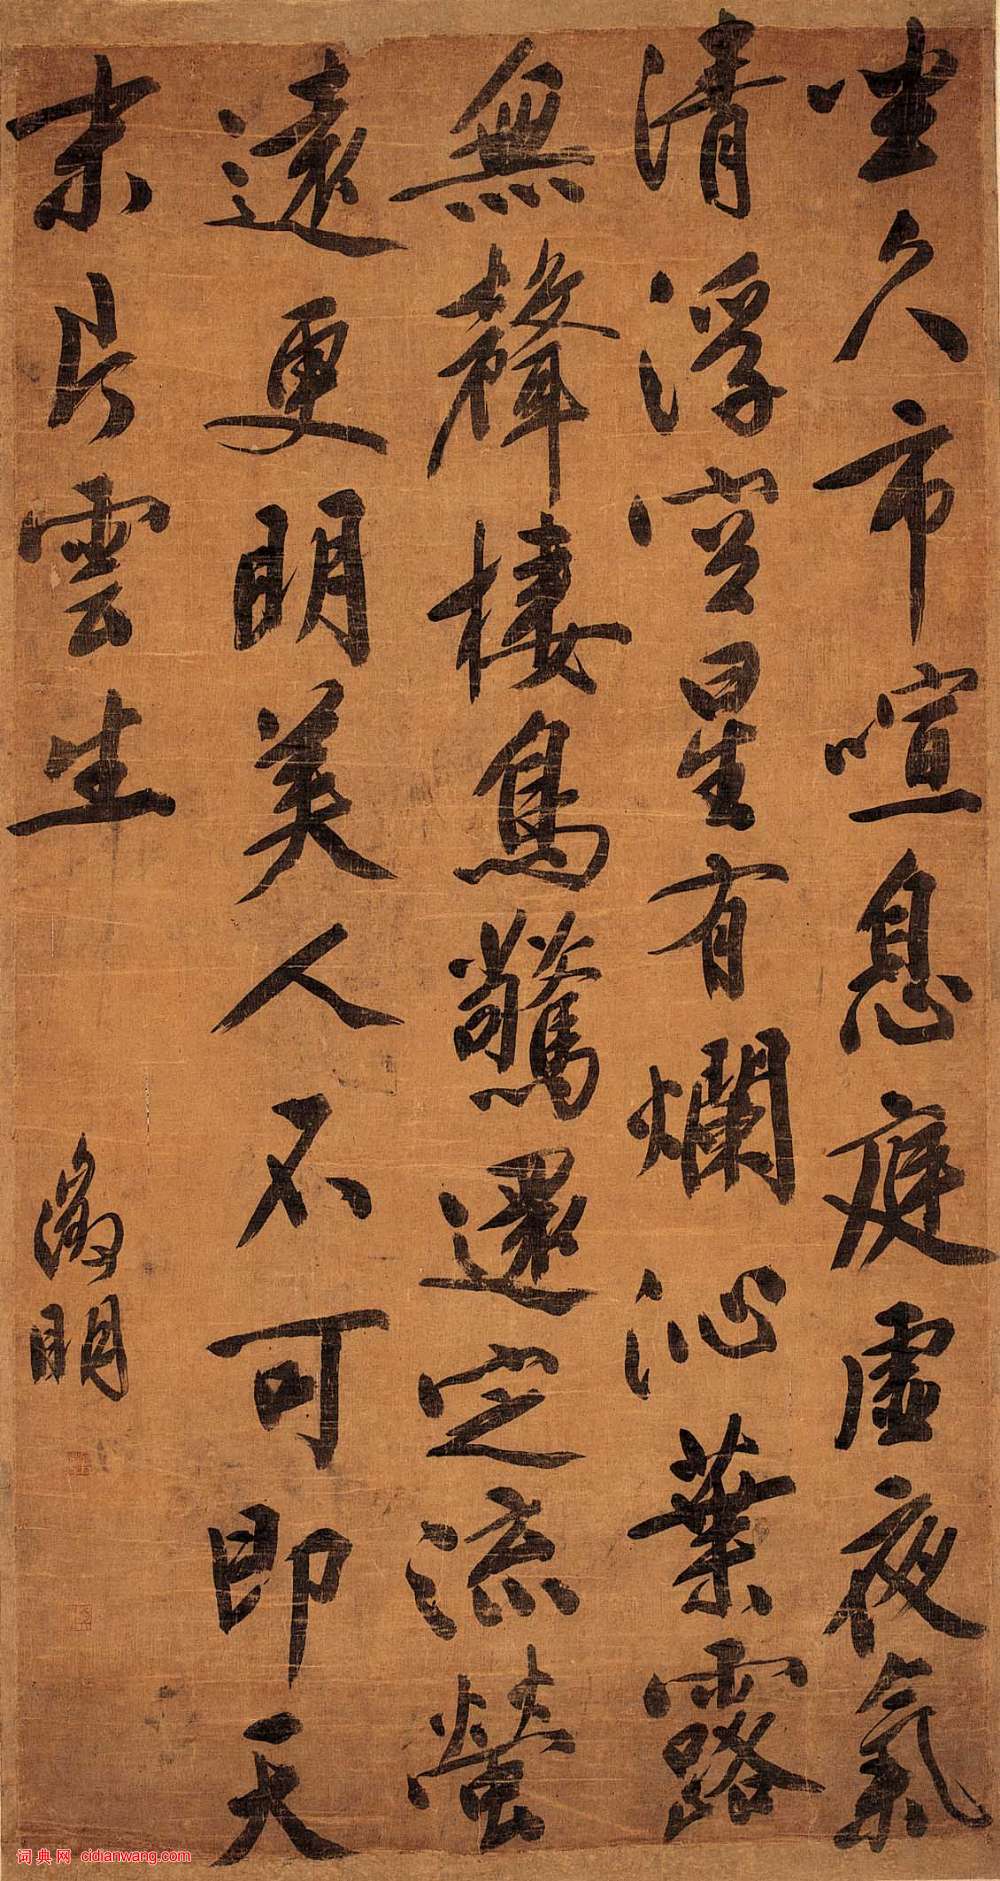 坐久市喧息庭虛夜氣
清浮空星有爛沁葉露
無聲棲鳥驚還定流螢
遠更明美人不可即天
末片雲生
徵明
词典网 cidianwang.com